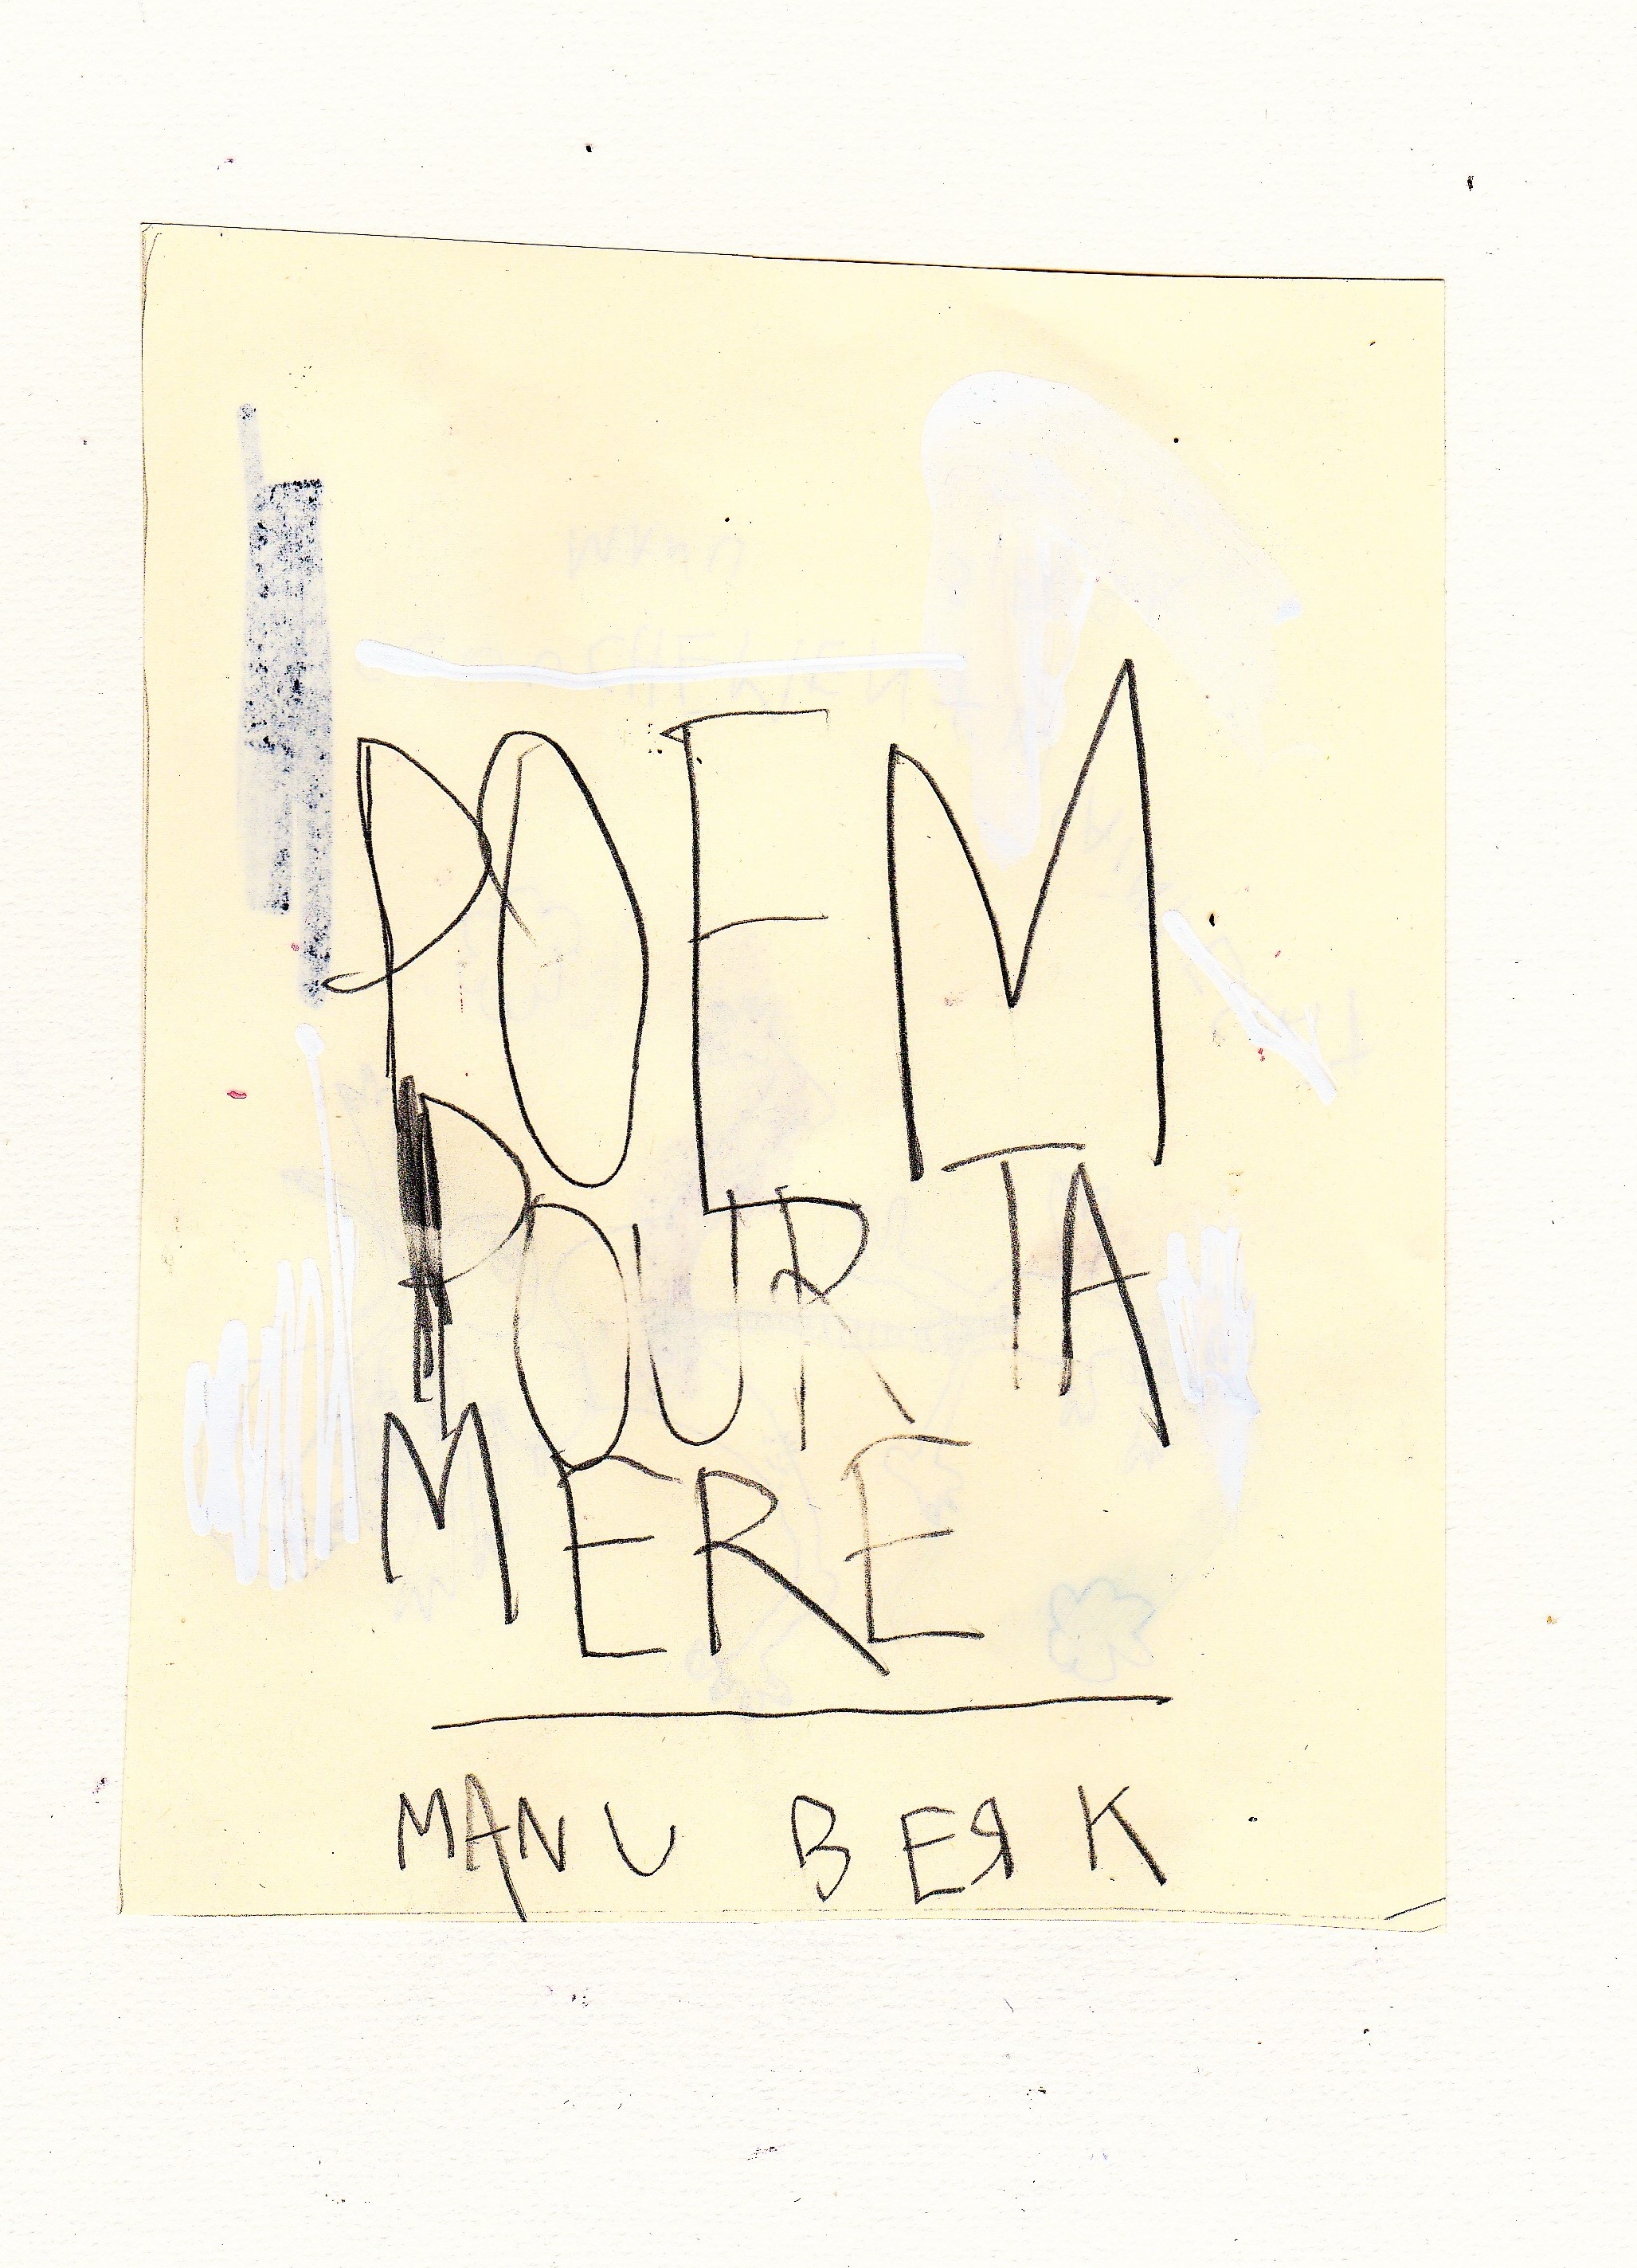 POEM
POUR TA
MERE
MANU BEЯK